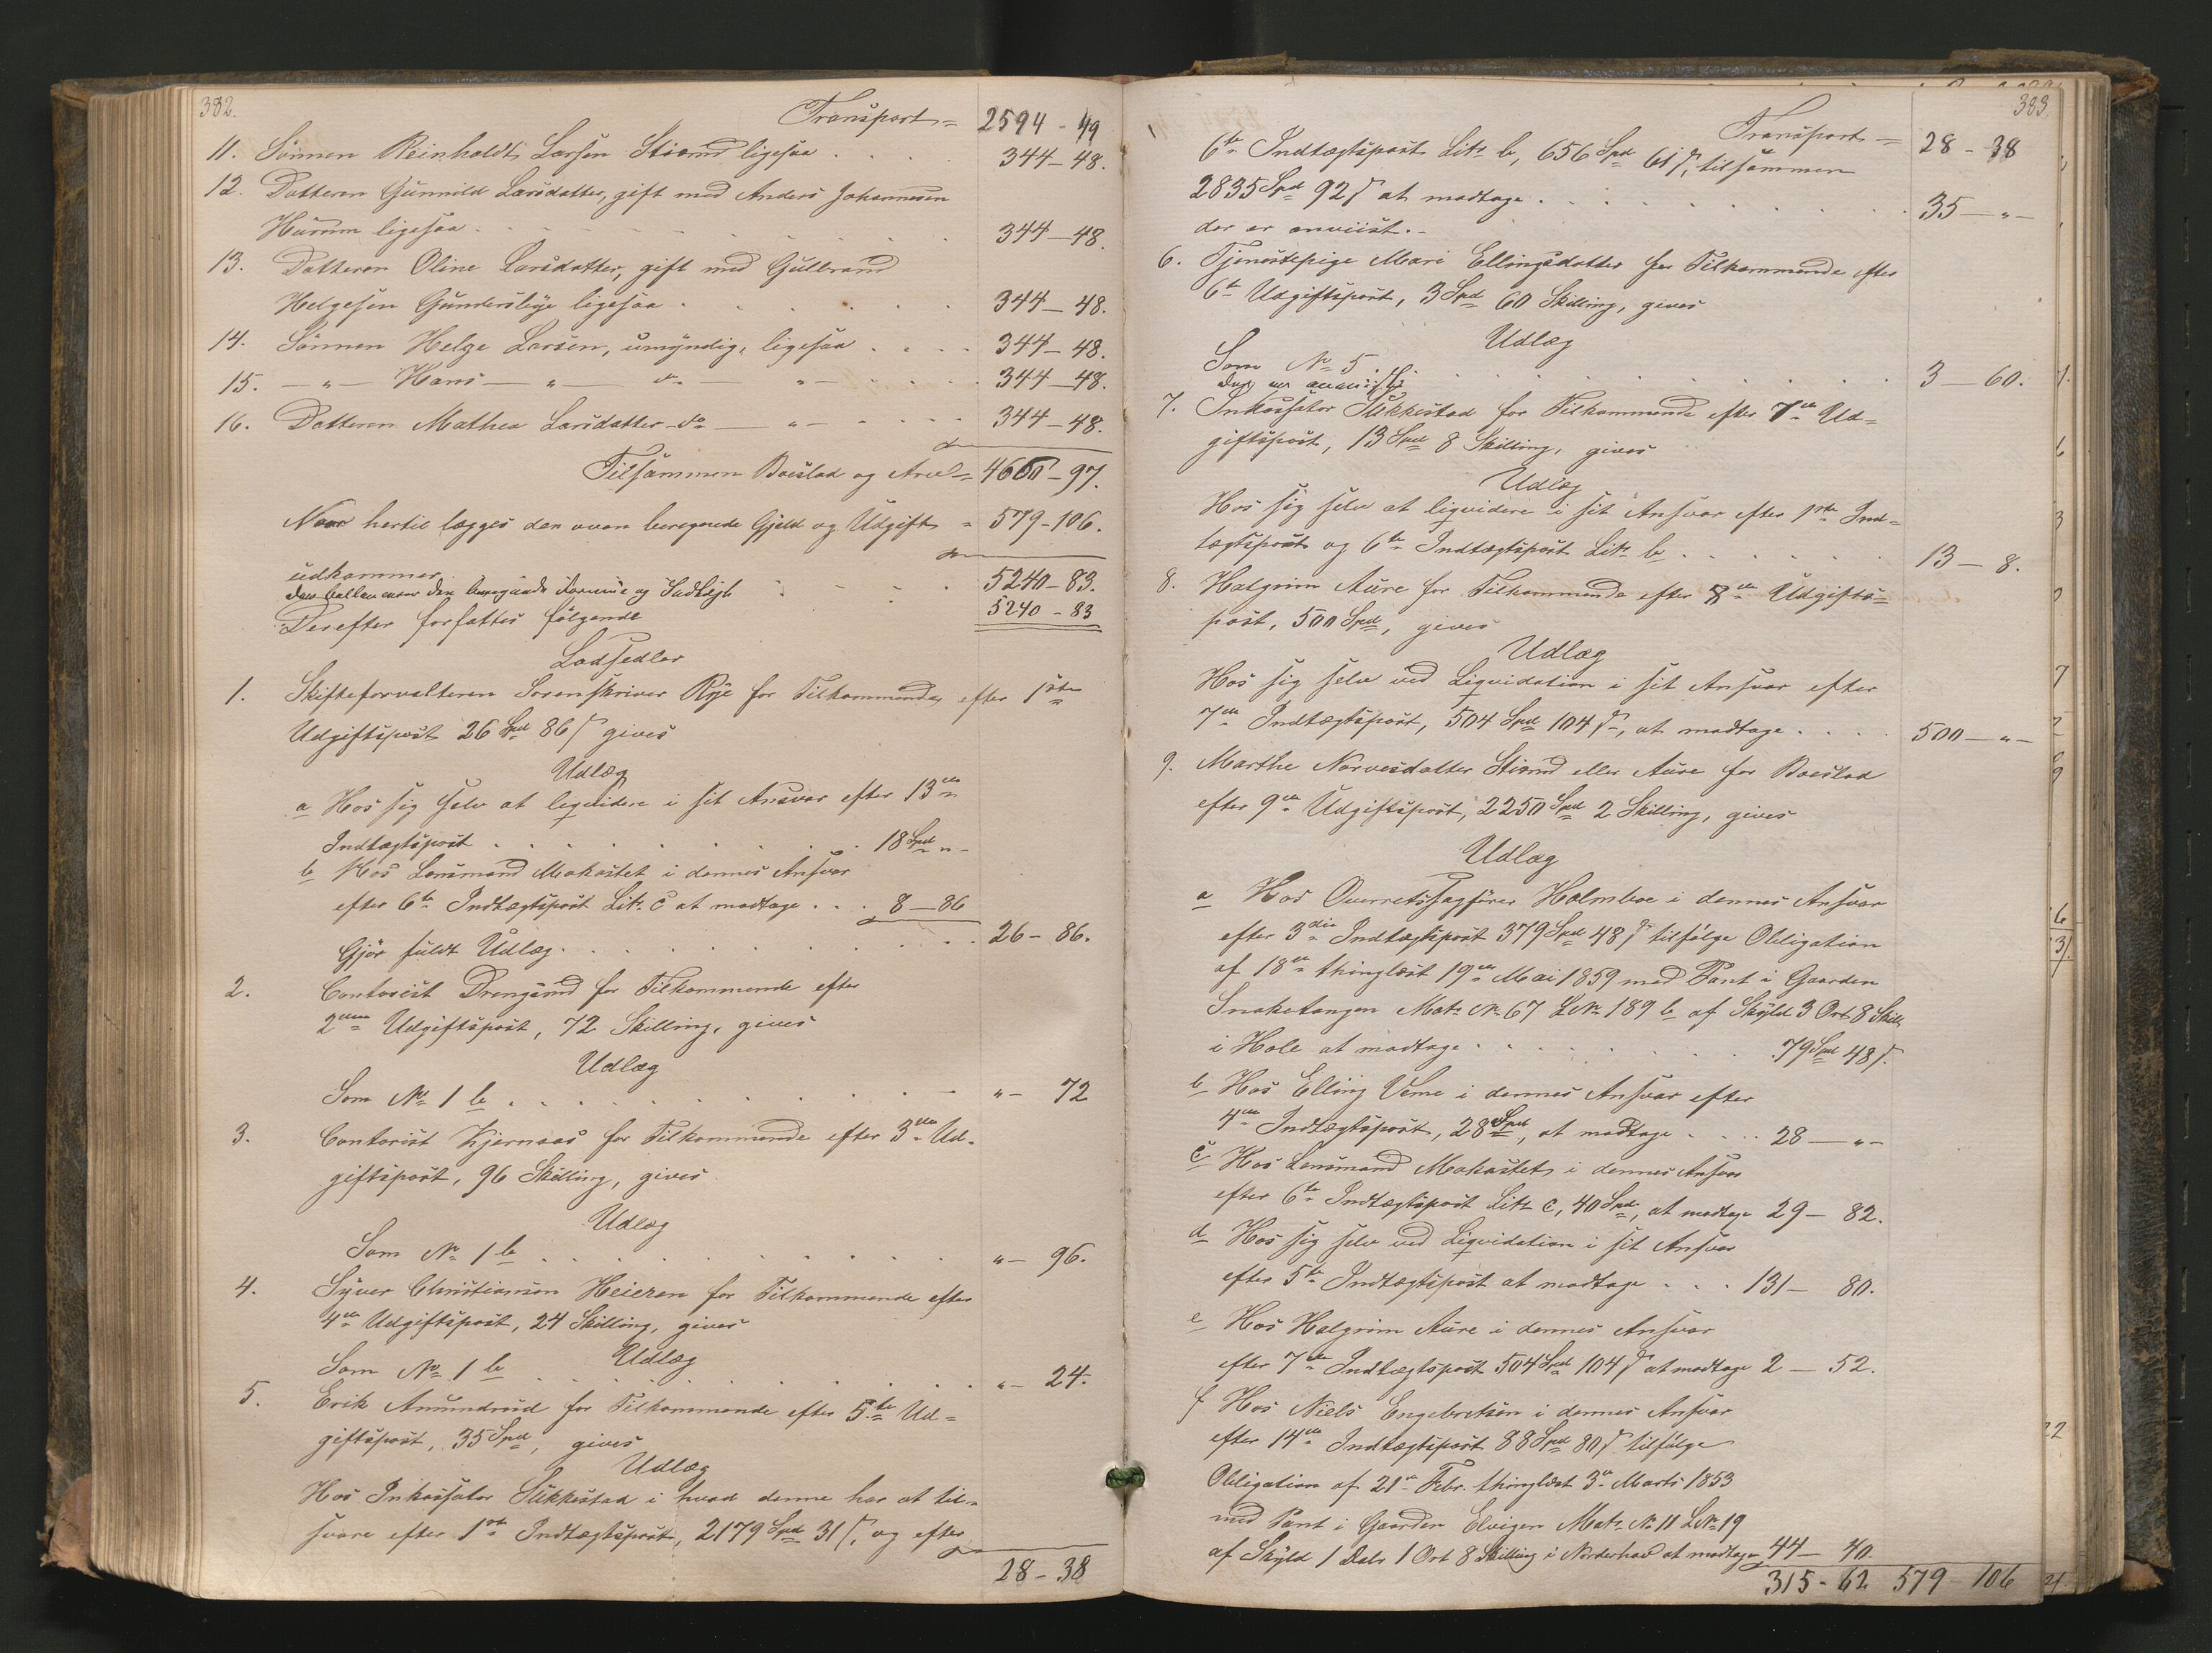 382.
Transport = 2594 - 49
11. Sönnen Reinholdt Larsen Stixrud ligesaa . . . . 344 - 48.
12. Datteren Gunnild Larsdatter, gift med Anders Johannesen
Hurum ligesaa . . . . . . . . 344 - 48.
13. Datteren Oline Larsdatter, gift med Gulbrand
Helgesen Gundersbye ligesaa . . . . . . 344 - 48.
14. Sönnen Helge Larsen, umyndig, ligesaa . . . . 344 - 48.
15. — " — Hans — " — do — " — . . . . 344 - 48.
16. Datteren Mathea Larsdatter do — " — . . . . 344 - 48.
Tilsammen Boeslod og Arv = 4660 - 97.
Naar hertil lægges den oven beregnede Gjeld og Udgift = 579 - 106.
udkommer . . . . 5240 - 83.
der ballancerer den beregnede Formue og Indtægt 5240 - 83
Derefter forfattes følgende
Lodsedler
1. Skifteforvalteren Sorenskriver Rye for Tilkommende efter 1ste
Udgiftspost 26 Spd 86 ß gives
Udlæg
a Hos sig selv at liqvidere i sit Ansvar efter 13de
Indtægtspost . . . . . . . . . 18 Spd " -
b Hos Lensmand Mokastet i dennes Ansvar
efter 6te Indtægtspost Litr. c at modtage . . . 8 - 86
Gjör fuldt Udlæg . . . . . . . . . 26 - 86.
2. Contorist Drengsrud for Tilkommende efter
2den Udgiftspost, 72 Skilling, gives
Udlæg
Som No 1 b . . . . . . . . . " - 72
3. Contorist Kjernaas for Tilkommende efter 3die Ud-
giftspost, 96 Skilling, gives
Udlæg
Som No 1 b . . . . . . . . . " - 96.
4. Syver Christiansen Heieren for Tilkommende efter
4de Udgiftspost, 24 Skilling, gives
Udlæg
Som No 1 b . . . . . . . . . " - 24.
5. Erik Amundrud for Tilkommende efter 5te Ud-
giftspost, 35 Spd, gives
Udlæg
Hos Inkassator Slikkestad i hvad denne har at til-
svare efter 1ste Indtægtspost, 2179 Spd 31 ß, og efter
28 - 38
383
Transport = 28 - 38
6te Indtægtspost Litr. b, 656 Spd 61 ß, tilsammen
2835 Spd 92 ß at modtage . . . . . . . . 35 - " -
der er anviist.-
6. Tjenestepige Mari Ellingsdatter for Tilkommende efter
6te Udgiftspost, 3 Spd 60 Skilling, gives
Udlæg
Som No 5 . . . . . . . . . 3 - 60.
der er anviist
7. Inkassator Slikkestad for Tilkommende efter 7de Ud-
giftspost, 13 Spd 8 Skilling, gives
Udlæg
Hos sig selv at liqvidere i sit Ansvar efter 1ste Ind-
tægtspost og 6te Indtægtspost Litr. b . . . . . . 13 - 8.
8. Halgrim Aure for Tilkommende efter 8de Udgifts-
post, 500 Spd, gives
Udlæg
Hos sig selv ved Liqvidation i sit Ansvar efter
7de Indtægtspost, 504 Spd 104 ß, at modtage . . . . 500 - " -
9. Marthe Narvesdatter Stixrud eller Aure for Boeslod
efter 9de Udgiftspost, 2250 Spd 2 Skilling, gives
Udlæg
a Hos Overretssagfører Holmboe i dennes Ansvar
efter 3die Indtægtspost 379 Spd 48 ß tilfölge Obligation
af 18de thinglæst 19de Mai 1859 med Pant i Gaarden
Snaketangen Matr. No 67 LNo 189 b af Skyld 3 Ort 8 Skill.
i Hole at modtage . . . . . . . 79 Spd 48 ß.
b Hos Elling Veme i dennes Ansvar efter
4de Indtægtspost, 28 Spd, at modtage . . . . 28 - " -
c Hos Lensmand Mokastet i dennes Ansvar
efter 6te Indtægtspost Litr c, 40 Spd, at modtage 29 - 82.
d Hos sig selv ved Liqvidation i sit Ansvar
efter 5te Indtægtspost at modtage . . . 131 - 80.
e Hos Halgrim Aure i dennes Ansvar
efter 7de Indtægtspost 504 Spd 104 ß at modtage 2 - 52.
f Hos Niels Engebretsen i dennes Ansvar
efter 14de Indtægtspost 88 Spd 80 ß tilfölge
Obligation af 21de Febr. thinglæst 3de Marts 1853
med Pant i Gaarden Elvigen Matr. No 11 LNo 19
af Skyld 1 Dalr 1 Ort 8 Skilling i Norderhov at modtage 44 - 40
315 - 62 579 - 106